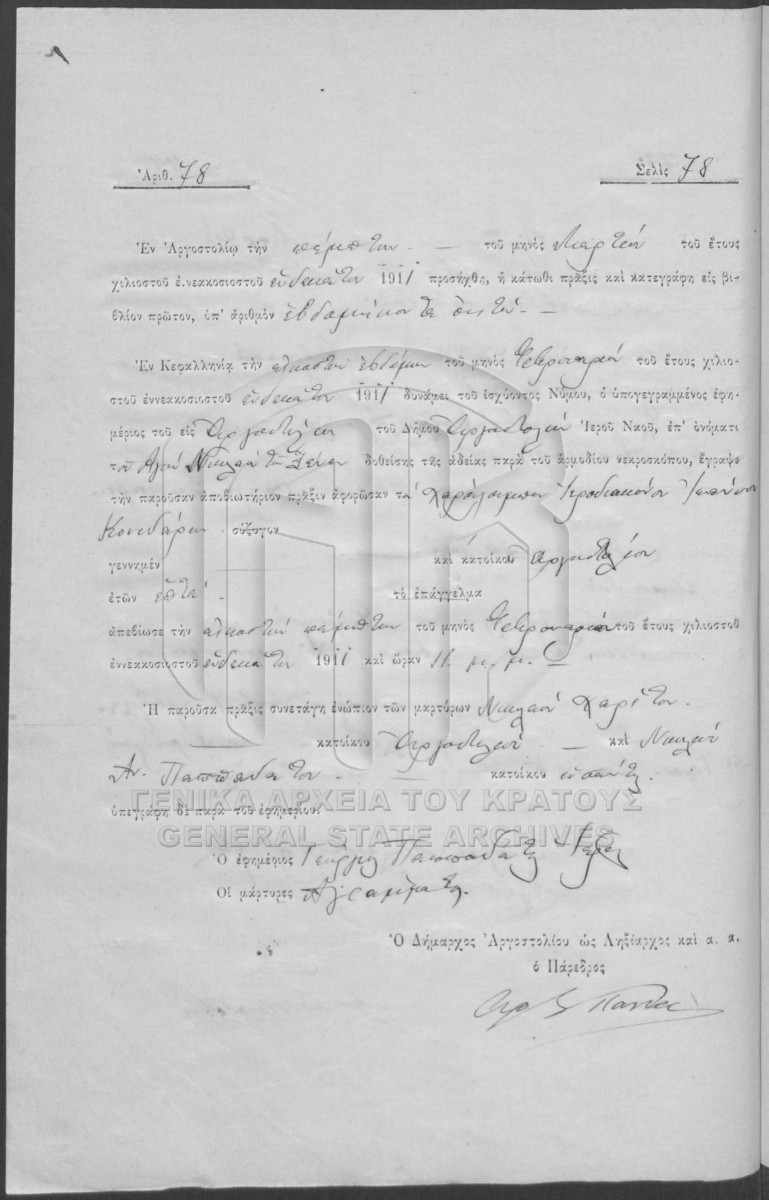 Ἀριθ. 78
Σελὶς 78
Ἐν Ἀργοστολίῳ τὴν πέμπτην — τοῦ μηνὸς Μαρτίου τοῦ ἔτους
χιλιοστοῦ ἐνεακοσιοστοῦ ἑνδεκάτου 1911 προσήχθη, ἡ κάτωθι πρᾶξις καὶ κατεγράφη εἰς βι-
βλίον πρῶτον, ὑπ' ἀριθμὸν ἑβδομήκοντα ὀκτώ. —
Ἐν Κεφαλληνίᾳ τὴν εἰκοστὴν ἑβδόμην τοῦ μηνὸς Φεβρουαρίου τοῦ ἔτους χιλιο-
στοῦ ἐννεακοσιοστοῦ ἑνδεκάτου 1911 δυνάμει τοῦ ἰσχύοντος Νόμου, ὁ ὑπογεγραμμένος ἐφη-
μέριος τοῦ εἰς Ἀργοστόλιον τοῦ Δήμου Ἀργοστολίου Ἱεροῦ Ναοῦ, ἐπ' ὀνόματι
τοῦ Ἁγίου Νικολάου τῶν Ξένων δοθείσης τῆς ἀδείας παρὰ τοῦ ἁρμοδίου νεκροσκόπου, ἔγραψε
τὴν παροῦσαν ἀποβιωτήριον πρᾶξιν ἀφορῶσαν τὸν Χαράλαμπον Ἱεροδιακόνου
Κονιδάρη σύζυγον
γεννημέν καὶ κατοίκου Ἀργοστολίου
ἐτῶν ἑπτά τὸ ἐπάγγελμα
ἀπεβίωσε τὴν εἰκοστὴν πέμπτην τοῦ μηνὸς Φεβρουαρίου τοῦ ἔτους χιλιοστοῦ
ἐννεακοσιοστοῦ ἑνδεκάτου 1911 καὶ ὥραν 11 μ. μ. —
Ἡ παροῦσα πρᾶξις συνετάγη ἐνώπιον τῶν μαρτύρων Νικολάου Χαρίτου
κατοίκου Ἀργοστολίου — καὶ Νικολάου
Ἀν. Παππαδάτου. — κατοίκου ὡσαύτως.
ὑπεγράφη δὲ παρὰ τοῦ ἐφημερίου.
ΓΕΝΙΚΑ ΑΡΧΕΙΑ ΤΟΥ ΚΡΑΤΟΥΣ
GENERAL STATE ARCHIVES
Ὁ ἐφημέριος Γεώργιος Παππαδάτος Ἱερεύς
Οἱ μάρτυρες Ἀγράμματοι.
Ὁ Δήμαρχος Ἀργοστολίου ὡς Ληξίαρχος καὶ α. α.
ὁ Πάρεδρος